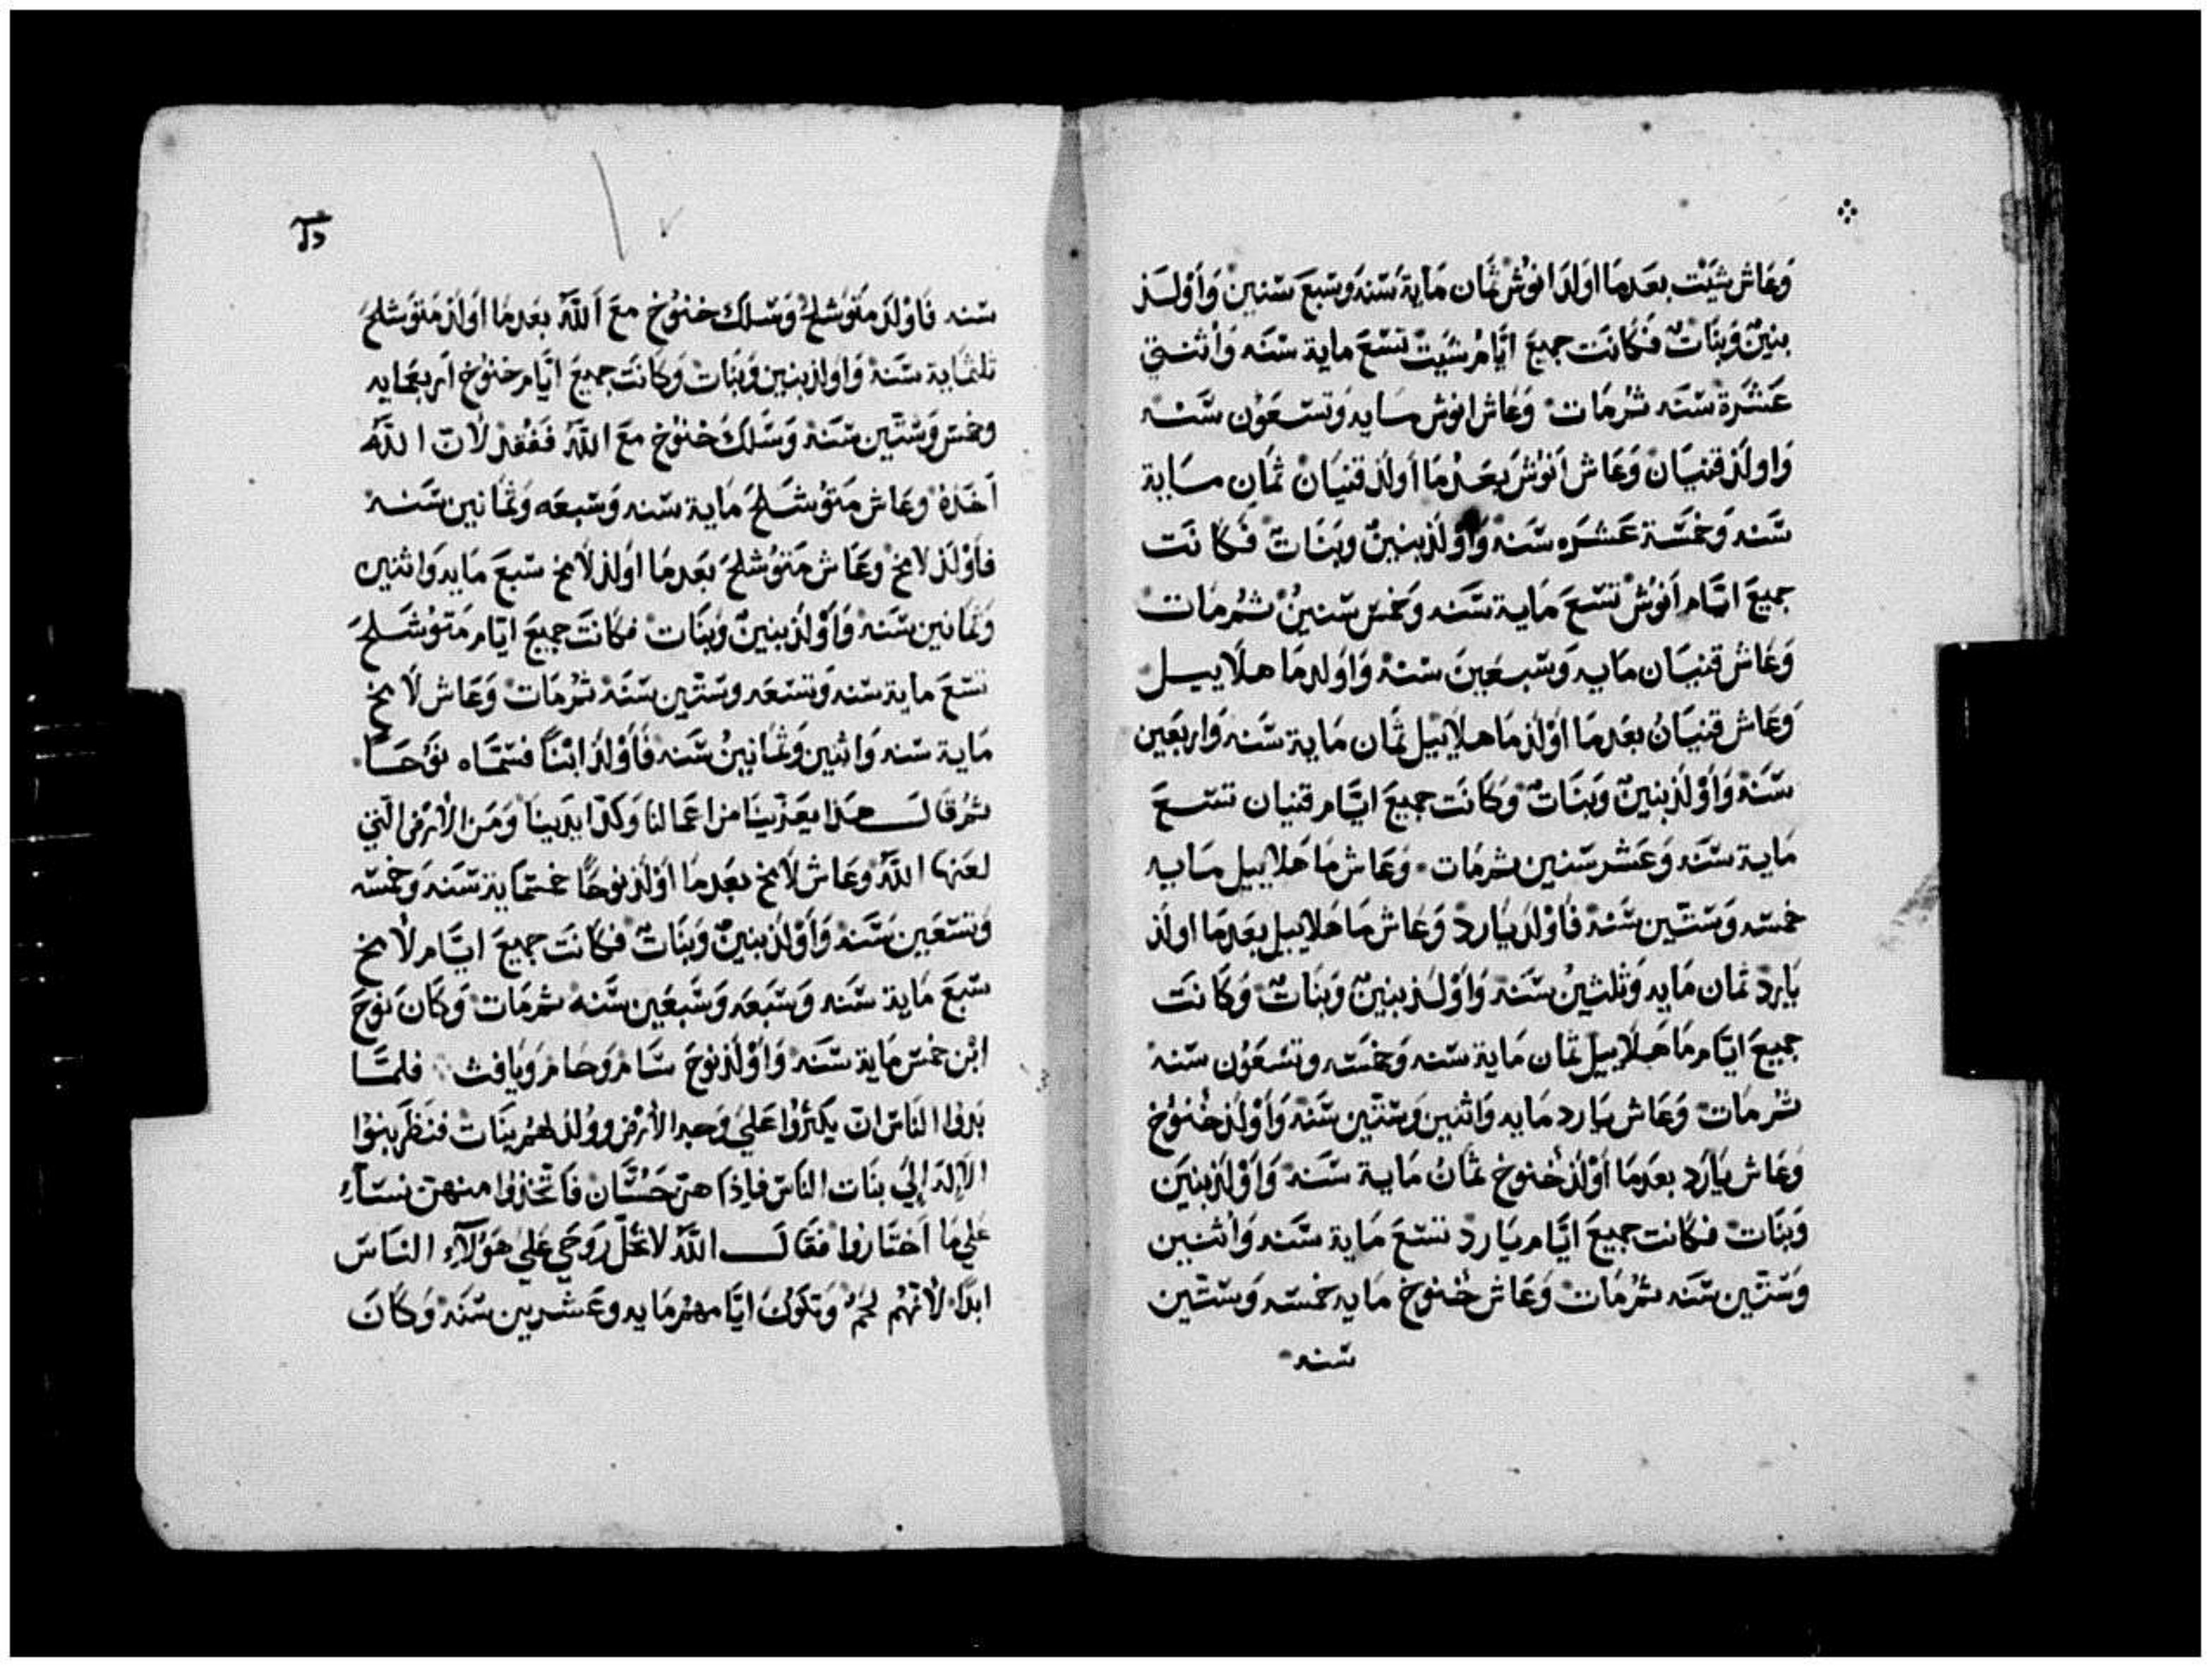 وَعَاش شِيَت بعَدمَا اولَدَ انوُش ثمَان مَاية سَنَه وَسَبعَ سَنين وَأَوْلَد
بنينٌ وَبنَاتٌ فَكانَت جميعَ ايَّام شيَت تسَعَ ماية سَنَه وَأثنتي
عَشَرَة سَنَه ثرُ مَات وَعَاش انوش مايه وَتسَعَوُن سَنَه
وَاولَد قنيَان وَعَاش أنوُش بعَدْمَا أولَد قنيَان ثمَان ماية
سَنَه وَخمسَة عَشَره سَنَه وَأوْلَد بنينٌ وبَنَاتٌ فَكانَت
جميعَ ايَّام أنوُش تسَعَ مَاية سَنَه وَخمسَ سنينُ ثمُ مَات
وَعَاش قنيَان مَايه وَسَبعَينَ سَنة وَاوَلد مَا هلَاييل
وَعَاش قنيَان بعَدمَا أوْلَد مَا هلاييل ثمَان مَاية سَنَه وَاربَعَين
سَنَة وَأوْلَد بنينٌ وَبنَاتٌ وَكانَت جميعَ ايَّام قنيان تسَعَ
مَاية سَنَه وَعَشر سَنين ثمرُ مَات وَعَاش مَا هَلاييل مَايه
خمسَه وَستّين سَنَة فَأوْلَد يَارد وَعَاش مَا هَلاييل بعَدمَا اولَد
يَارد ثمَان مَايه وَثلثينُ سَنَه وَأوْلَد بنينٌ وَبنَاتٌ وَكانَت
جميعَ ايَّام مَا هَلاييل ثمَان مَاية سَنه وَخمسَه وتسَعَوُن سَنه
ثمُ مَات وَعَاش يَارد مَايه وَاثنين وَستّين سَنَة وَأوْلَد خُنوُخ
وَعَاش يَارَد بعَدمَا أوْلَد خُنوخ ثمَانُ مَاية سَنَه وَأوْلَد بنينَ
وَبنَات فكانت جميعَ ايَّام يَارد تسَعَ مَاية سَنَه وَأثنين
وَستّين سَنَه ثمُ مَات وَعَاش خُنوخ مَايه خمسَه وَستّين
سَنه
سَنه فَأوْلَد مَتوُشلحَ وَسَلَك خنوُخ معَ أللَّه بعَدمَا أوَلَد مَتوَشلحَ
ثلثمَاية سَنَة وَاوَلد بنين وَبنَات وَكانَت جميعَ ايَّام خنوُخ أربعَمايه
وخمسَ وَستّين سَنَة وَسَلَكَ خنوُخ معَ اللَّه فَفُقدَ لأنَ اللَّه
أخَذهُ وعَاش مَتوُشَلحَ مَاية سَنه وَسَبعَه وَثمَانين سَنَه
فأوْلَد لامخ وعَاش مَتوُشلحَ بعَدمَا أوَلد لَامخ سَبعَ مَايه وَاثنين
وَثمَانين سَنَة وَأوْلَد بنينٌ وَبنَات فكَانَت جميعَ ايَّام مَتوُشَلحَ
تسَعَ ماية سَنه وَتسَعَه وستّين سَنَة ثمُ مَات وَعَاش لَامخ
مَاية سَنه وَاثنين وَثمَانينُ سَنَه فَأوْلَد ابْنًا فسَمَّاه نوُحًا
ثمُ قال هذا يعَذينا من اعمَالنا وَكدّ ايدَينَا وَمَن الأرْض الّتي
لعَنهَا اللَّه وعَاش لَامخ بعَدمَا أوْلَد نوحًا خمسَمَاية سَنَه وَخمسَه
وَتسَعَين سَنَة وَأوْلَد بنينٌ وَبنَاتٌ فكَانَت جميعَ ايَّام لَامخ
سَبعَ مَاية سَنَه وَسَبَعَه وَسَبعَين سَنَه ثمُ مَات وَكَانَ نوُحَ
ابْن خمسَ مَاية سَنَه وَأوْلَد نوحَ سَام وَحام وَيَافث فلمَّا
بَدوا النَّاس ان يكثرُوا عَليَ وَجه الأرْض وَوُلدَ لهمُ بنَات فنَظَر بنوُا
الألَه إليَ بنَات النَاس فإذَا هنّ حَسَّان فَاتّخذوا منهنّ نسَآء
عَلي مَا أختَاروا فقَال اللَّه لا تحلّ رَوحي عَلي هَوُلآءِ النَاسَ
ابدًا لأنهُم لحمٌ وَتكَوُن ايَّامهمُ مَايه وعَشرين سَنَه وَكَانَ